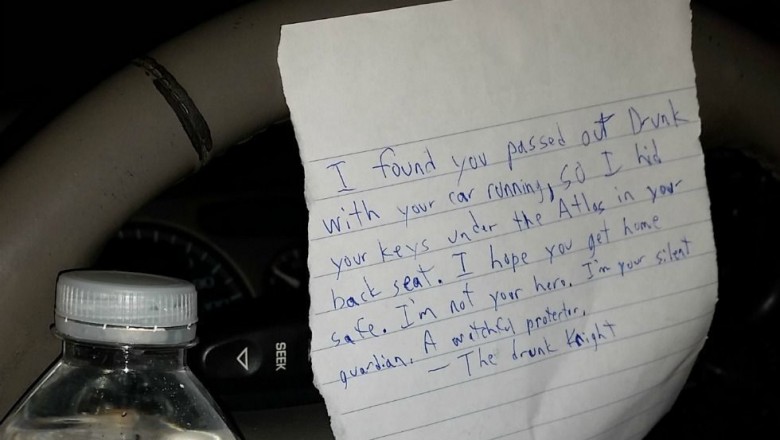 I found you passed out Drunk
with your car running, so I hid
your keys under the Atlas in your
back seat. I hope you get home
safe. I'm not your hero. I'm your silent
guardian. A watchful protector.
— The drunk Knight
SEEK